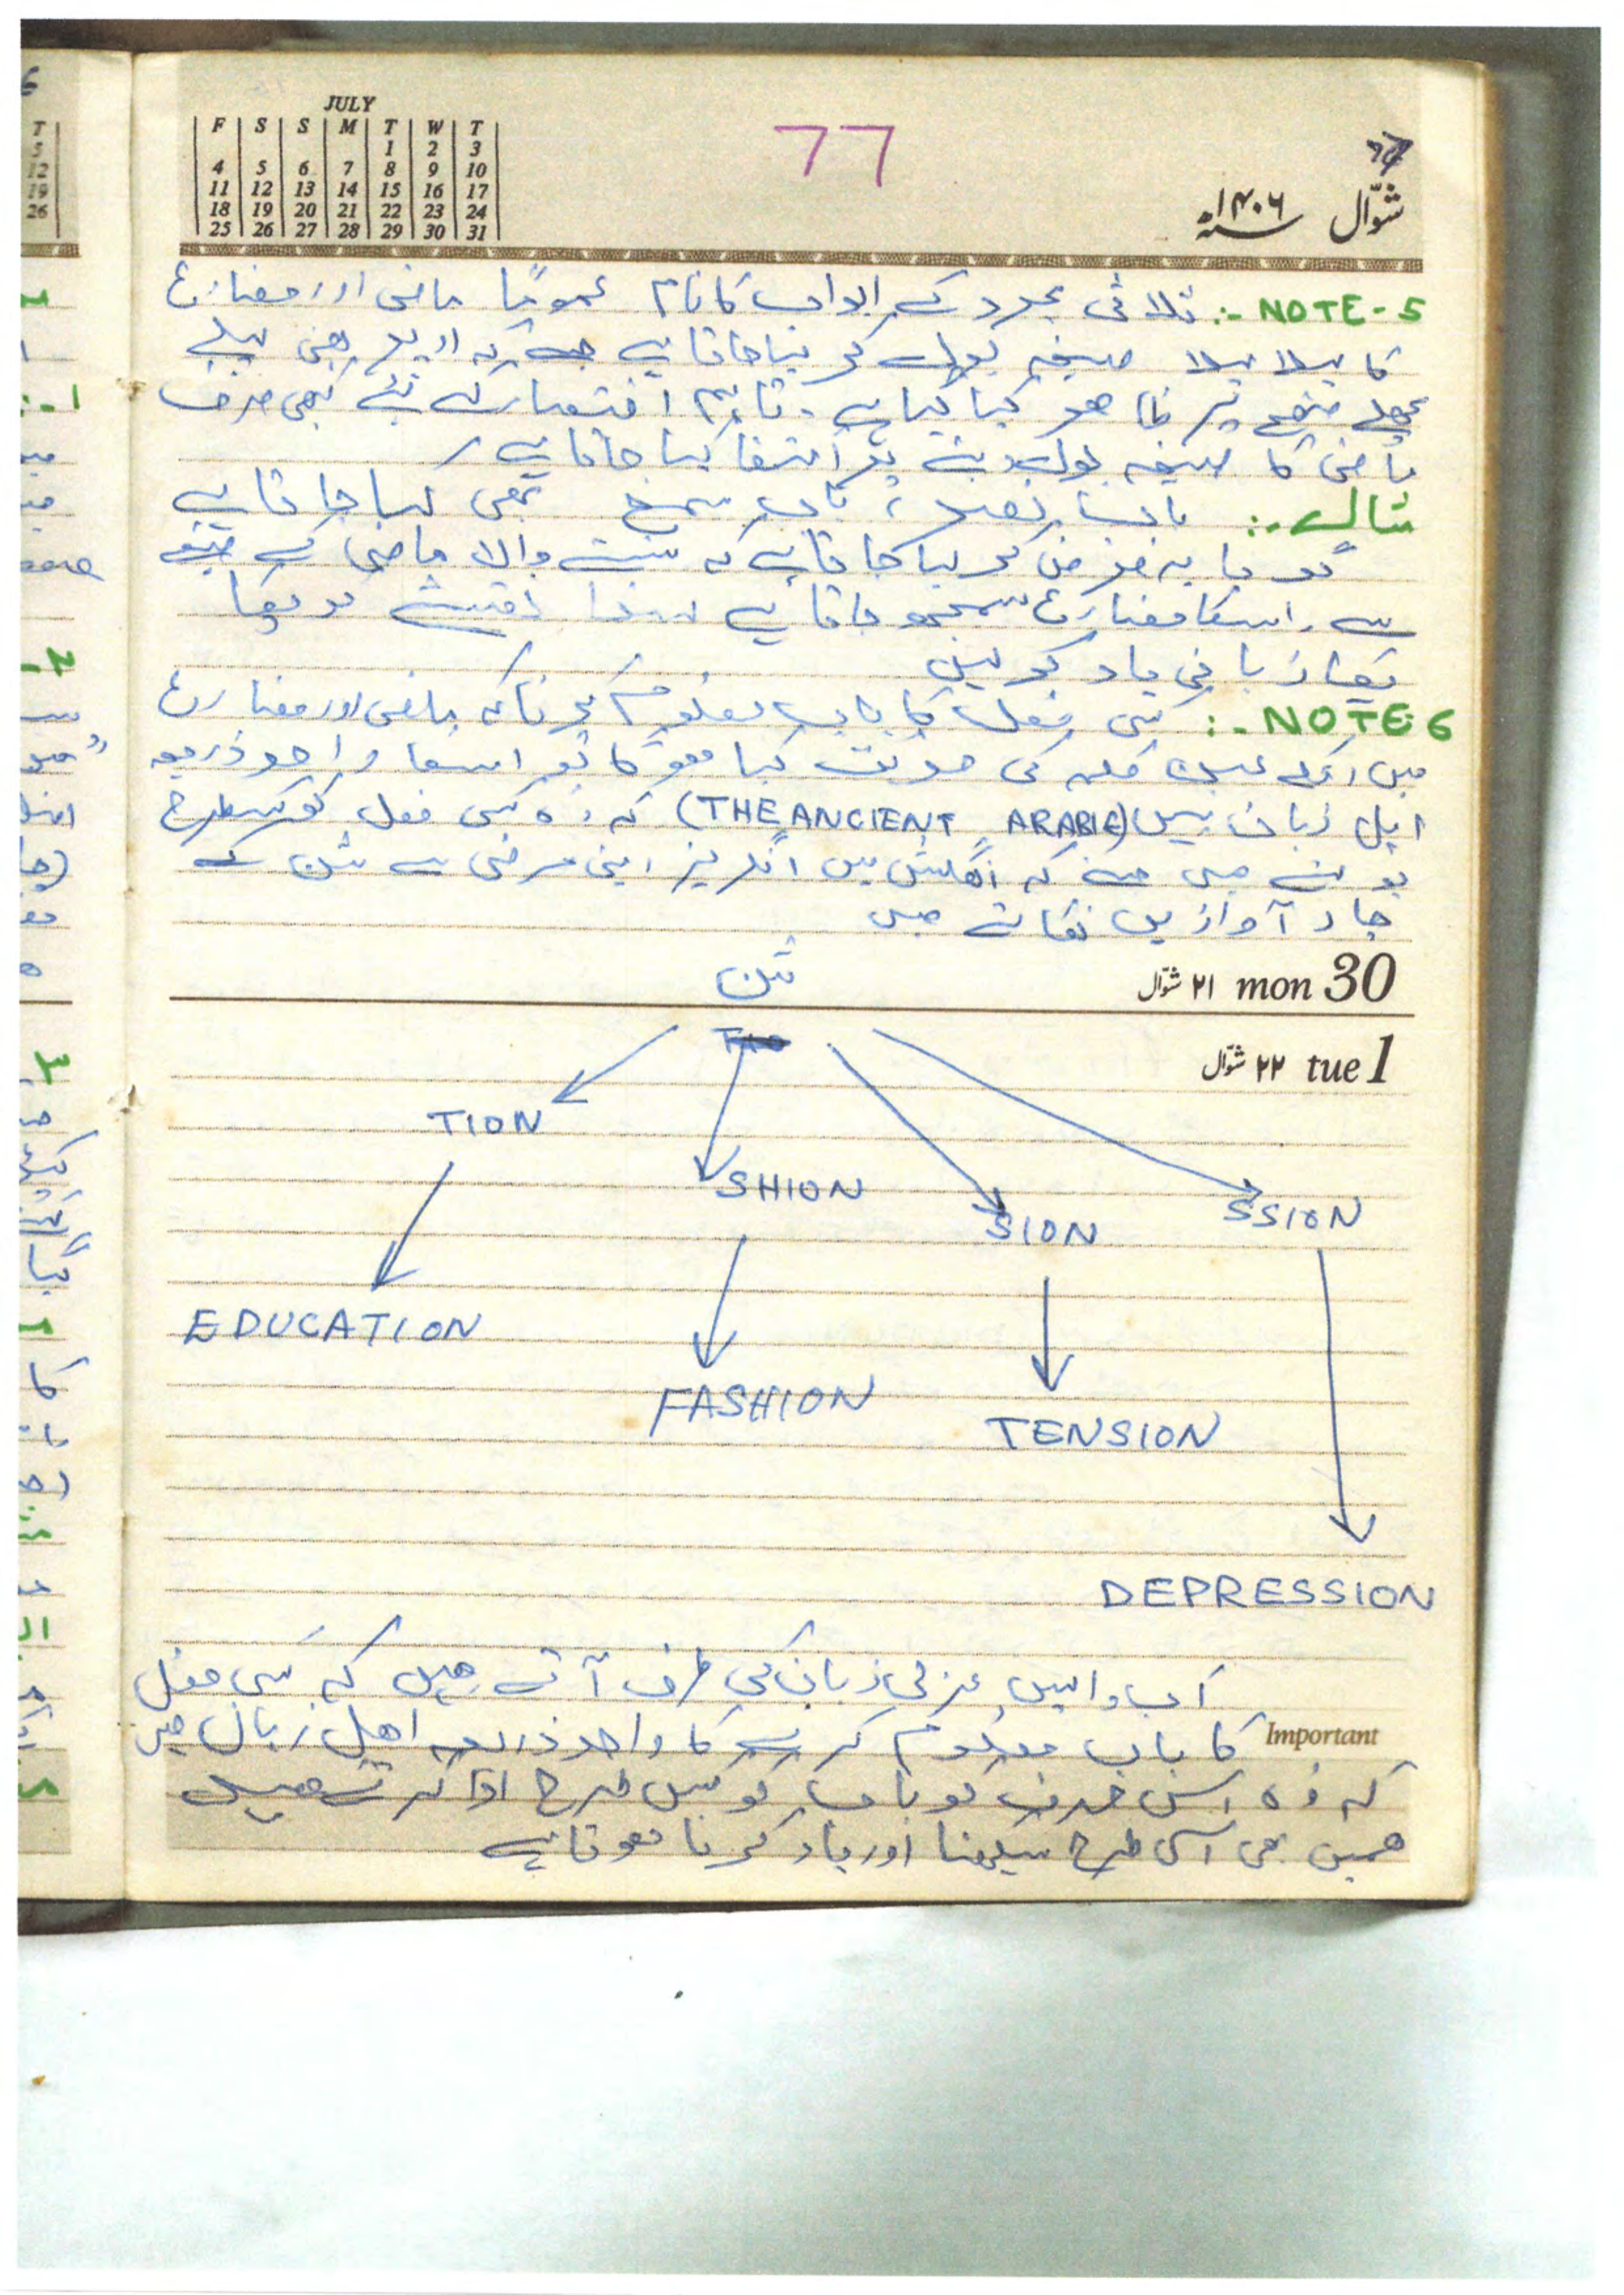 JULY
F S S M T W T
1 2 3
4 5 6 7 8 9 10
11 12 13 14 15 16 17
18 19 20 21 22 23 24
25 26 27 28 29 30 31
77
شوّال ۱۴۰۶
NOTE-5 :- ثلاثی مجرد کے ابواب کا نام عموماً ماضی اور مضارع
کا پہلا پہلا صیغہ بول کر لیا جاتا ہے
کیا گیا ہے۔ تاہم اختصار کے لئے کبھی صرف
ماضی کا صیغہ بول دینے پر اکتفا کیا جاتا ہے
مثال :- باب نصر، باب سمع بھی کہا جاتا ہے
گویا یہ فرض کر لیا جاتا ہے کہ سننے والا ماضی کے صیغے
سے اسکا مضارع سمجھ جاتا ہے لہذا نقشے کو
زبانی یاد کر لیں
NOTE 6 :- کسی فعل کا باب معلوم کرنا کہ ماضی اور مضارع
میں اسکے عین کلمہ کی حرکت کیا ہوگی تو اسکا واحد ذریعہ
اہل زبان ہیں (THE ANCIENT ARABIC) کہ وہ کسی فعل کو کسطرح
بولتے ہیں جیسے کہ انگلش میں انگریز اپنی مرضی سے شن کے
چار آوازیں نکالتے ہیں
شن
۲۱ شوّال mon 30
۲۲ شوّال tue 1
TION
SHION
SION
SSION
EDUCATION
FASHION
TENSION
DEPRESSION
اب واپس عربی زبان کی طرف آتے ہیں کہ کسی فعل
Important کا باب معلوم کرنے کا واحد ذریعہ اہل زبان ہیں
کہ وہ اس حرف کو یا باب کو کس طرح ادا کرتے ہیں
ہمیں بھی اسی طرح سیکھنا اور یاد کرنا ہوتا ہے